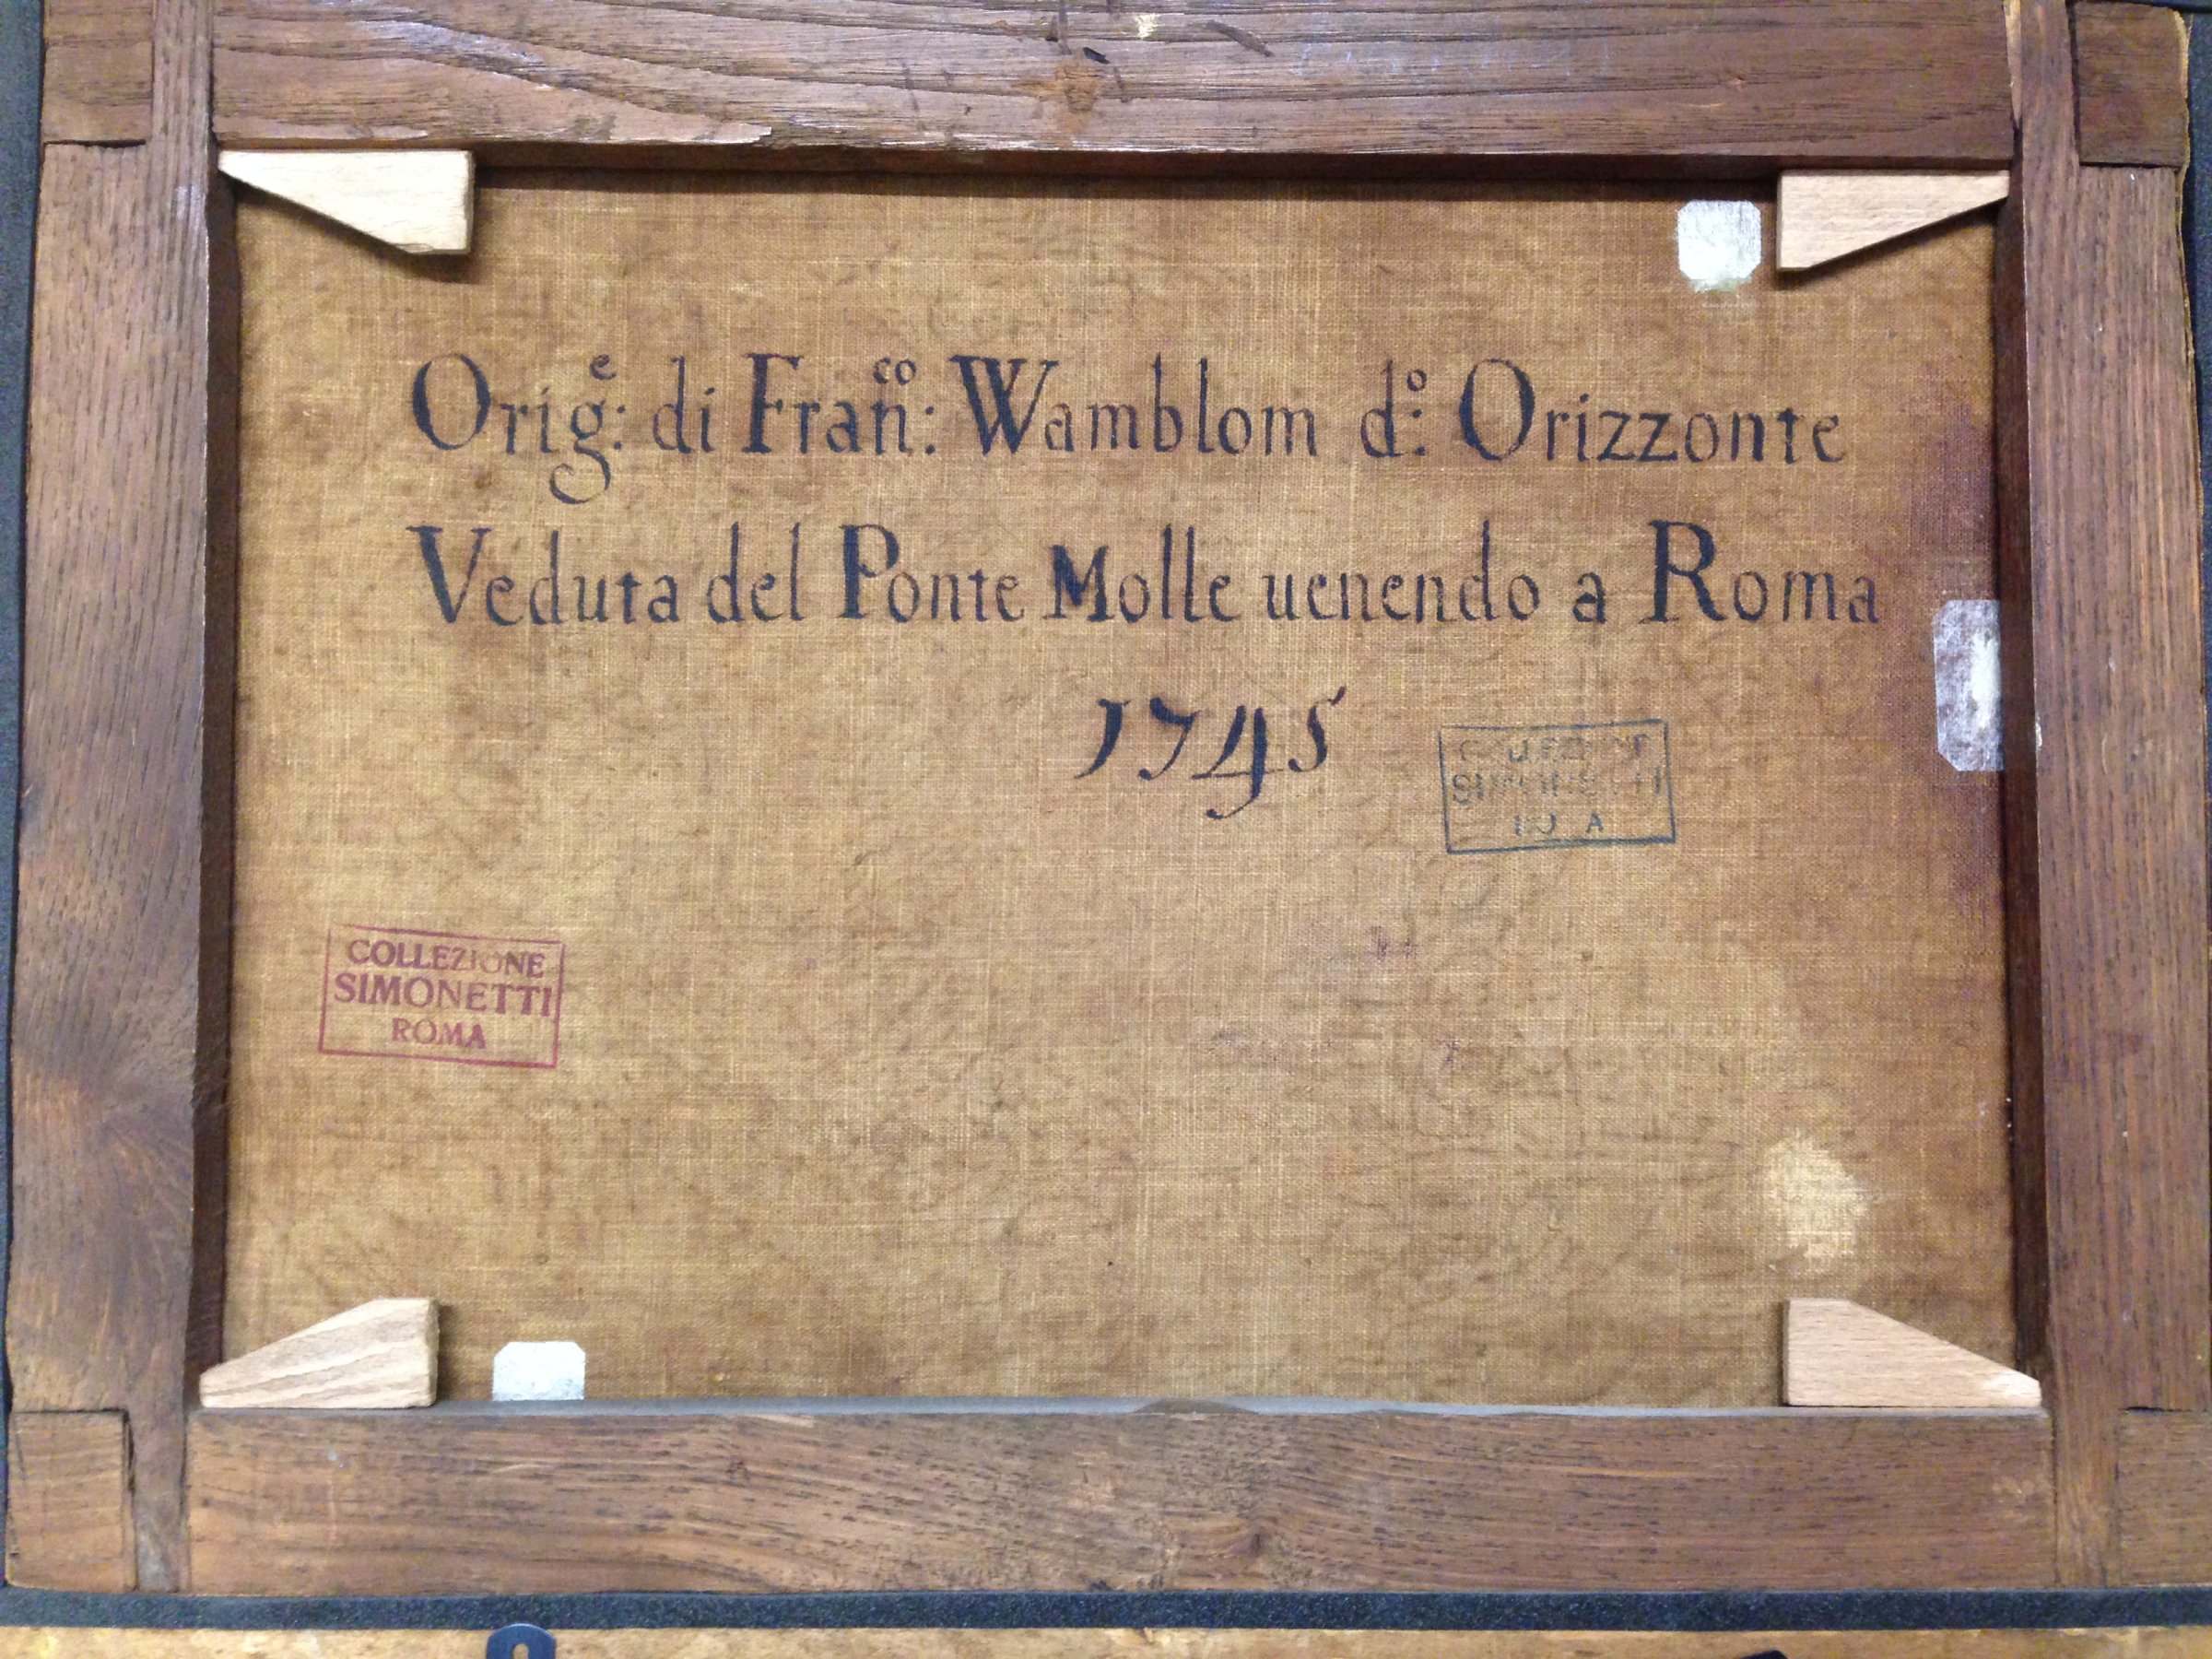 Orig.ᵉ: di Fran̄ᶜᵒ: Wamblom d.º: Orizzonte
Veduta del Ponte Molle uenendo a Roma
1745
COLLEZIONE
SIMONETTI
ROMA